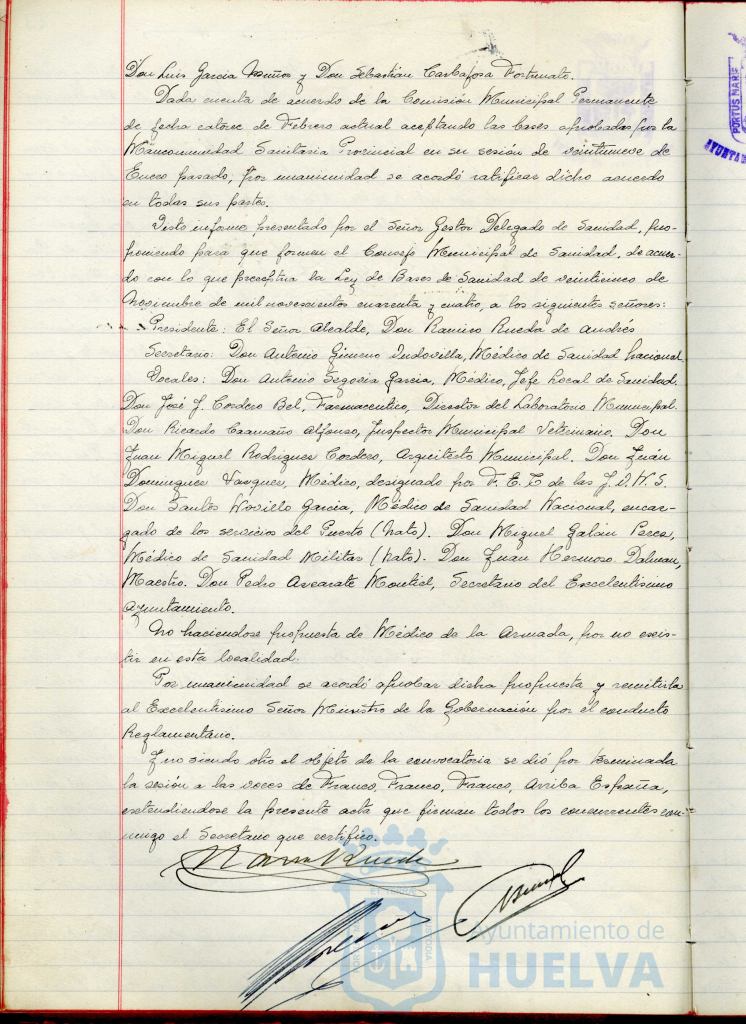 Don Luis Garcia Muñoz y Don Sebastián Carbajosa Fortunato.
Dada cuenta de acuerdo de la Comisión Municipal Permanente
de fecha catorce de Febrero actual aceptando las bases aprobadas por la
Mancomunidad Sanitaria Provincial en su sesión de veintinueve de
Enero pasado, por unanimidad se acordó ratificar dicho acuerdo
en todas sus partes.
Visto informe presentado por el Señor Gestor Delegado de Sanidad, pro-
poniendo para que formen el Consejo Municipal de Sanidad, de acuer-
do con lo que preceptua la Ley de Bases de Sanidad de veinticinco de
Noviembre de mil novecientos cuarenta y cuatro, a los siguientes señores:
Presidente: El Señor Alcalde, Don Ramiro Rueda de Andrés
Secretario: Don Antonio Gimeno Indovilla, Médico de Sanidad Nacional
Vocales: Don Antonio Segovia Garcia, Médico, Jefe Local de Sanidad.
Don José J. Cordero Bel, Farmaceutico, Director del Laboratorio Municipal.
Don Ricardo Caamaño Alfonso, Inspector Municipal Veterinario. Don
Juan Miguel Rodriguez Cordero, Arquitecto Municipal. Don Juan
Dominguez Vazquez, Médico, designado por F.E.T de las J.O.N.S.
Don Santos Novillo Garcia, Médico de Sanidad Nacional, encar-
gado de los servicios del Puerto (nato). Don Miguel Galán Perea,
Médico de Sanidad Militar (nato). Don Juan Hermoso Dalmau,
Maestro. Don Pedro Azcarate Montiel, Secretario del Excelentisimo
Ayuntamiento.
No haciendose propuesta de Médico de la Armada, por no exis-
tir en esta localidad.
Por unanimidad se acordó aprobar dicha propuesta y remitirla
al Excelentisimo Señor Ministro de la Gobernación por el conducto
Reglamentario.
Y no siendo otro el objeto de la convocatoria se dió por terminada
la sesión a las voces de Franco, Franco, Franco, Arriba España,
extendiendose la presente acta que firman todos los concurrentes con-
migo el Secretario que certifico.
Ayuntamiento de
HUELVA
PORTUS MARIS